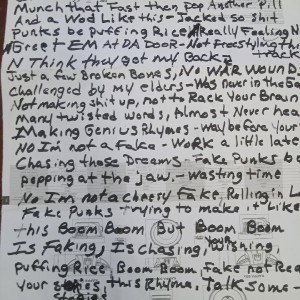 Munch that Fast then Pop Another Pill
And a Wod Like this - Jacked so shit
Punks be puffing Rice Really Feeling N
Greet EM At DA Door - Not Freestyling th
N Think they got my Back track
Just a few Broken Bones, No WAR WOUND
Challenged by my elders - Was never in the Ga
Not making shit up, not to Rack Your Brain
many twisted words, Almost Never hea
Making Genius Rhymes - Way before Your
No Im not a fake - Work a little late
Chasing those Dreams - Fake Punks be
popping at the jaw, - wasting time
No Im not a cheery Fake Rolling in L
Fake Punks trying to make it Like
this Boom Boom But Boom Boom
Is Faking, Is Chasing, Wishing,
puffing Rice Boom Boom Fake not Rea
Your stories, this Rhyme. - Talk Some -
stories